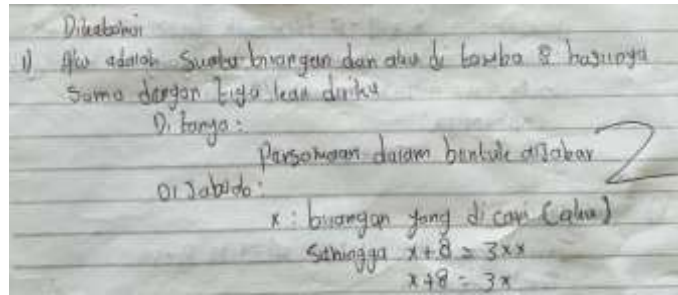 Diketahui
1) Aku adalah suatu biangan dan aku di tamba 8 hasilnya
sama dengan tiga kali diriku
Di tanya:
Parsamaan dalam bentuk aljabar 2
Di Jawab:
x: biangan yang di cari (aku)
Sehingga x+8 = 3xx
x+8 = 3x